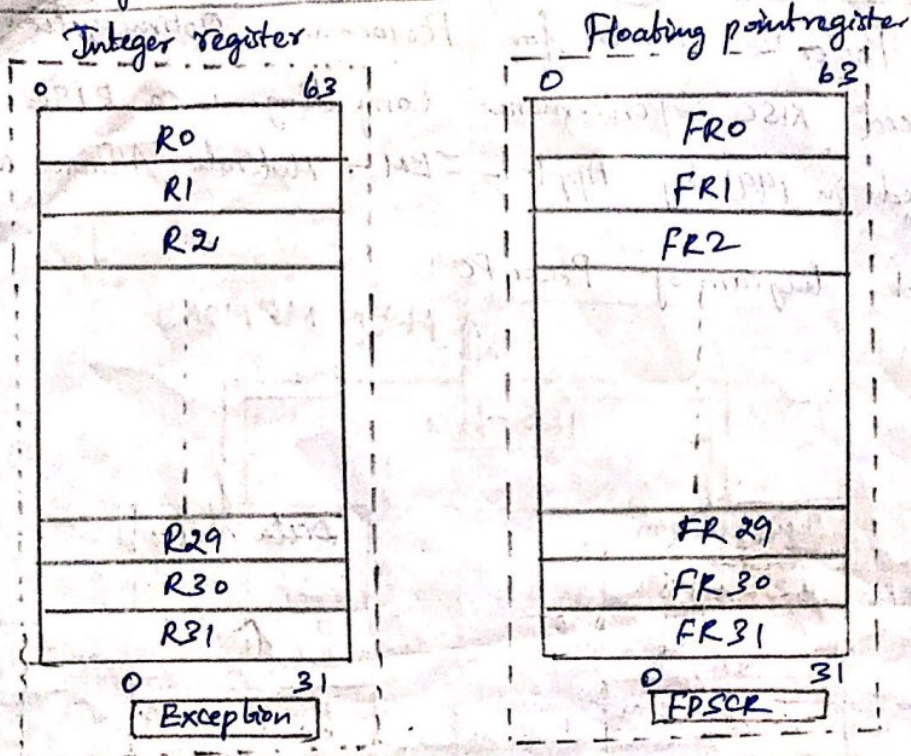 Integer register
0 63
R0
R1
R2
R29
R30
R31
0 31
Exception
Floating point register
0 63
FR0
FR1
FR2
FR 29
FR 30
FR 31
0 31
FPSCR